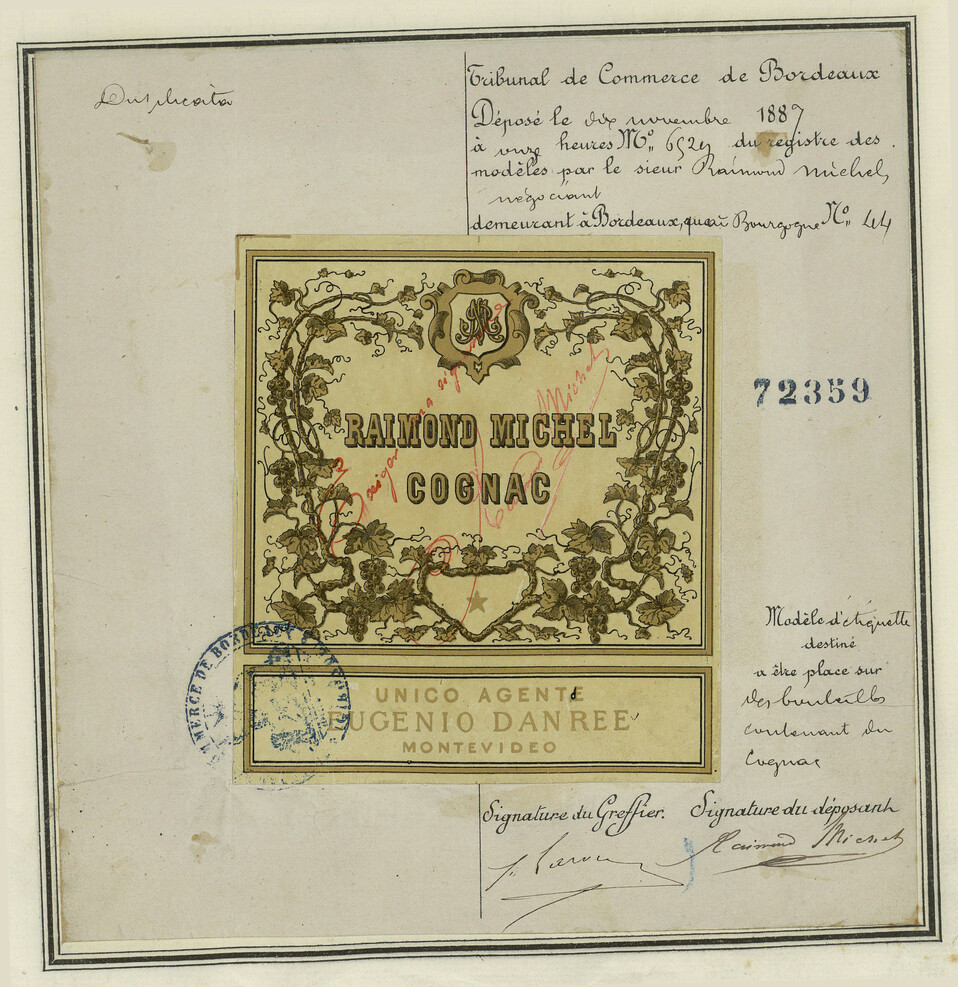 Duplicata
Tribunal de Commerce de Bordeaux
Déposé le dix novembre 1887
à onze heures No. 6529 du registre des
modèles par le sieur Raimond Michel,
négociant
demeurant à Bordeaux, quai Bourgogne No. 44
RM
RAIMOND MICHEL
COGNAC
Raimond Michel
72359
UNICO AGENTE
EUGENIO DANREE
MONTEVIDEO
MERCE DE BORDEAUX
Modèle d'étiquette
destiné
a être place sur
des bouteilles
contenant du
Cognac
Signature du Greffier. Signature du déposant
Raimond Michel